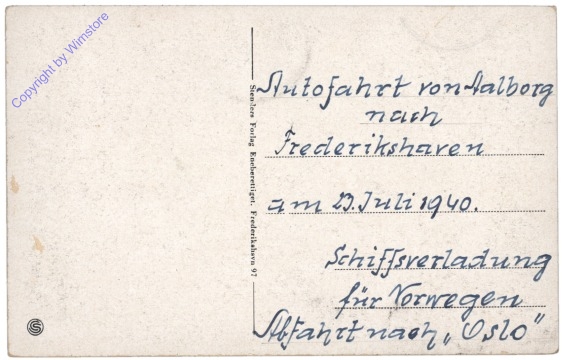 Copyright by Wimstore
Stenders Forlag Eneberettiget. Frederikshavn 97
Autofahrt von Aalborg
nach
Frederikshaven
am 23. Juli 1940.
Schiffsverladung
für Norwegen
Abfahrt nach „Oslo”
S